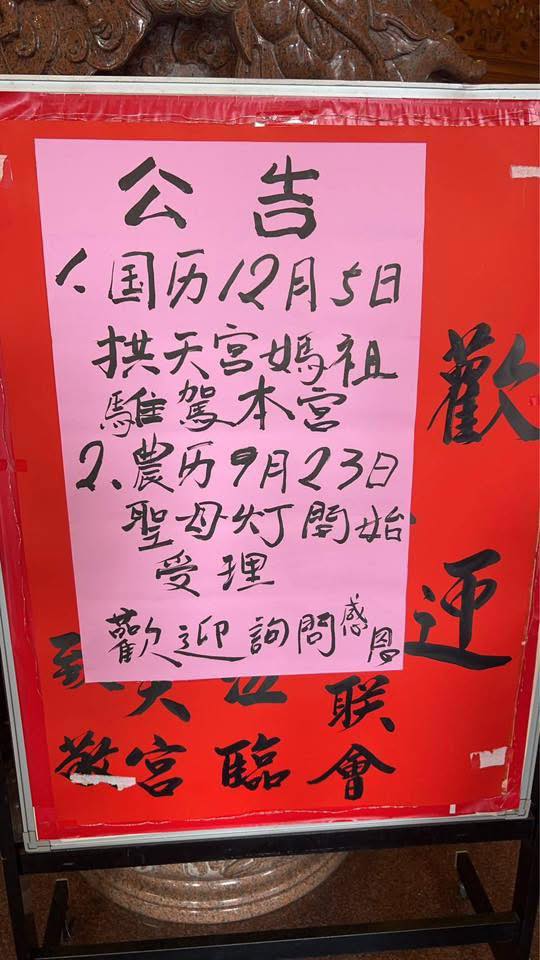 公告
1、国历12月5日
拱天宮媽祖
騅駕本宮
2、農历9月23日
聖母灯開始
受理
歡迎詢問感恩
歡迎
联會
臨
宮
敬